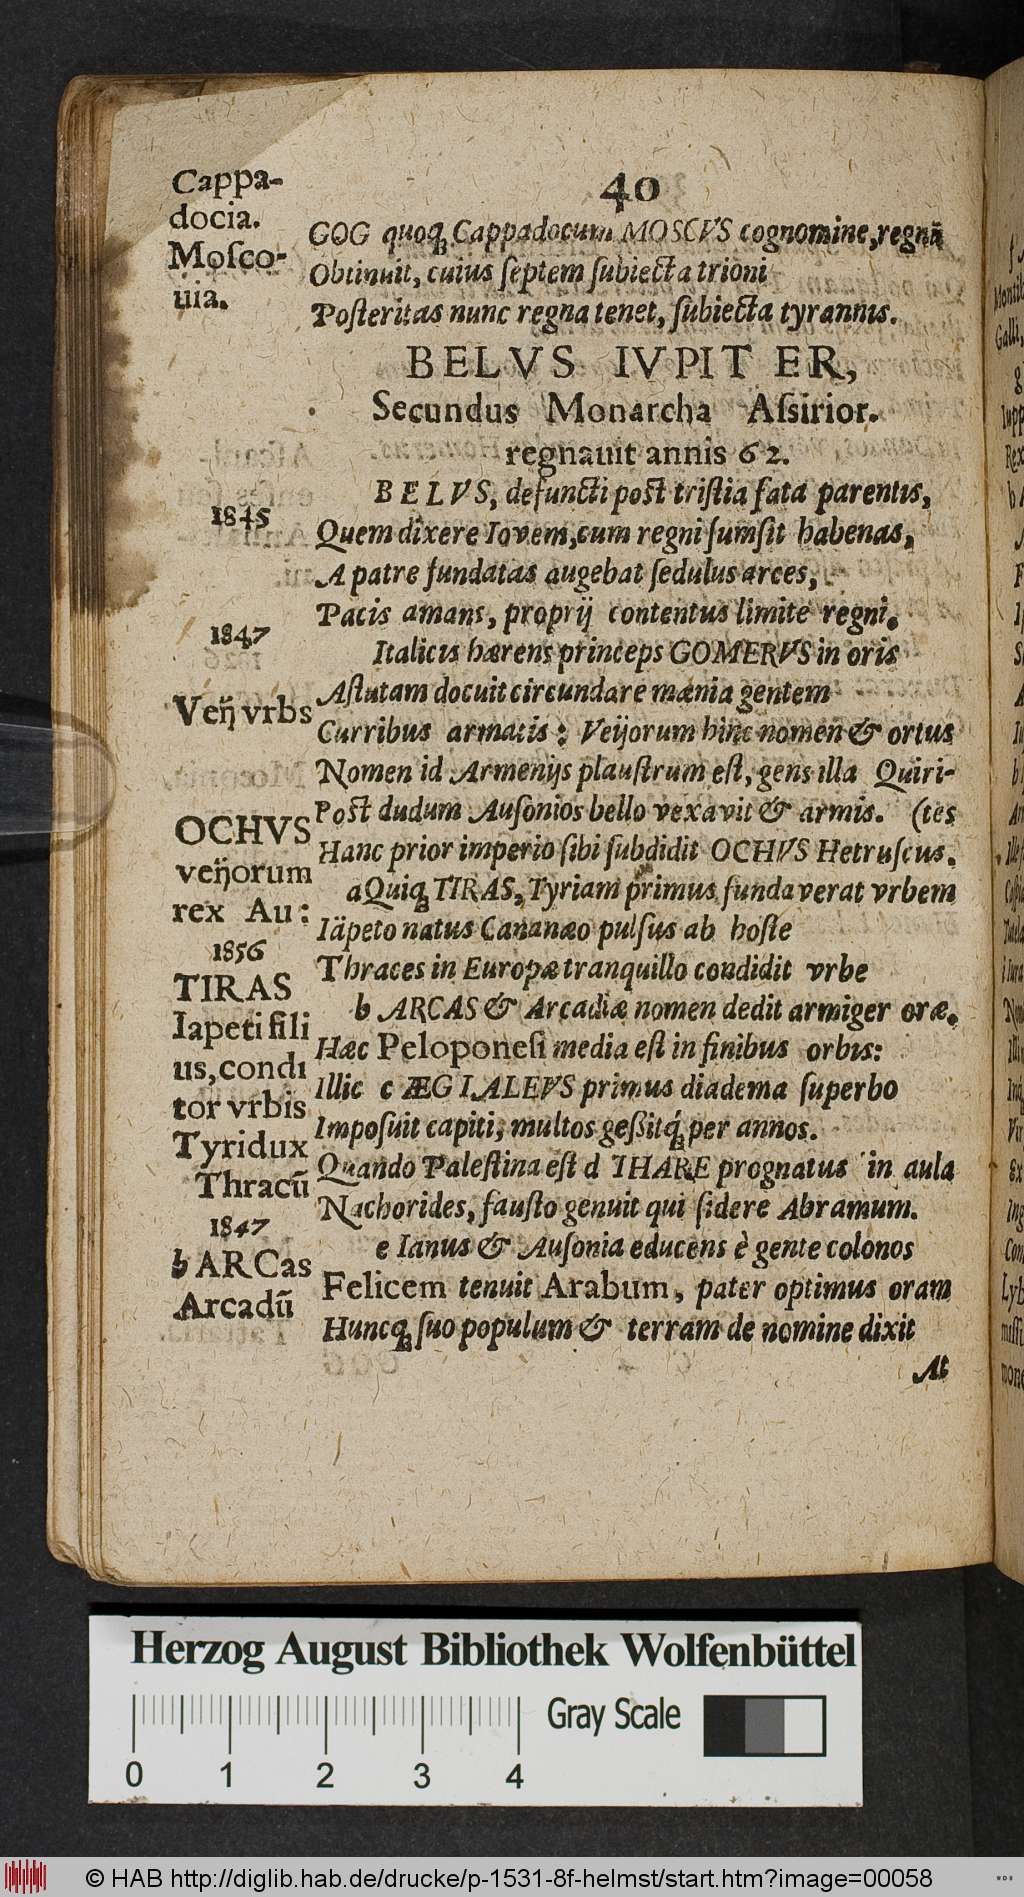 40
Cappa-
docia.
Moſco-
uia.
GOG quoq; Cappadocum MOSCVS cognomine, regnũ
Obtinuit, cuius ſeptem ſubiecta trioni
Poſteritas nunc regna tenet, ſubiecta tyrannıs.
BELVS IVPITER,
Secundus Monarcha Aſsirior.
regnauit annis 62.
1845
BELVS, defuncti post triſtia fata parentıs,
Quem dixere Iovem, cum regni ſumſit habenas,
A patre fundatas augebat ſedulus arces,
Pacis amans, proprij contentus limite regni.
1847
Italicıs hærens princeps GOMERVS in oris
Aſtutam docuit circundare mœnia gentem
Veij vrbs
Curribus armatis: Veijorum hinc nomen & ortus
Nomen id Armenijs plauſtrum eſt, gens illa Quiri-
Post dudum Auſonios bello vexavit & armis. (tes
OCHVS
veijorum
rex Au:
Hanc prior imperio ſibi ſubdidit OCHVS Hetruſcus.
aQuiq; TIRAS, Tyriam primus fundaverat vrbem
Iäpeto natus Cananæo pulſus ab hoſte
1856
TIRAS
Iapeti fili
us, condı
tor vrbis
Tyri dux
Thracũ
Thraces in Europæ tranquillo condidit vrbe
b ARCAS & Arcadiæ nomen dedit armiger oræ.
Hæc Peloponeſi media eſt in finibus orbıs:
Illic c ÆGIALEVS primus diadema ſuperbo
Impoſuit capiti, multos geßitq́; per annos.
Quando Paleſtina eſt d THARE prognatus in aula
Nachorides, fauſto genuit qui ſidere Abramum.
1847
b ARCas
Arcadũ
e Ianus & Auſonia educens è gente colonos
Felicem tenuit Arabum, pater optimus oram
Huncq; ſuo populum & terram de nomine dixit
At
Herzog August Bibliothek Wolfenbüttel
0 1 2 3 4
Gray Scale
© HAB http://diglib.hab.de/drucke/p-1531-8f-helmst/start.htm?image=00058